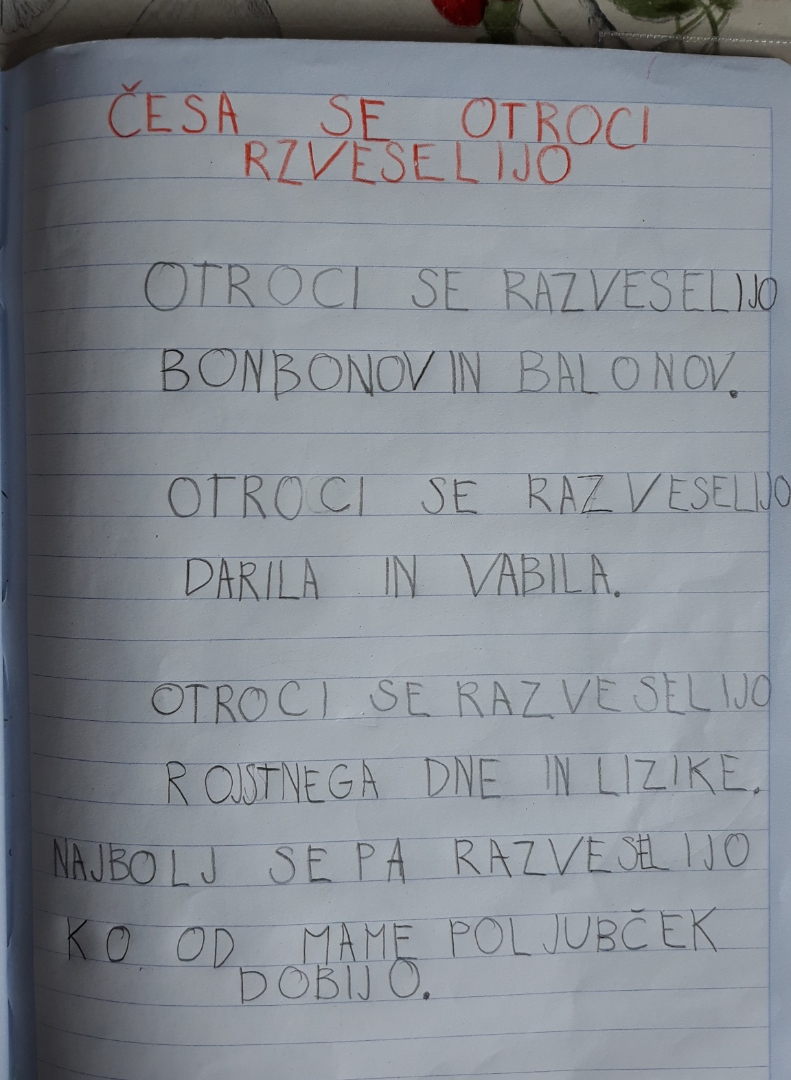 ČESA SE OTROCI
RZVESELIJO
OTROCI SE RAZVESELIJO
BONBONOV IN BALONOV.
OTROCI SE RAZVESELIJO
DARILA IN VABILA.
OTROCI SE RAZVESELIJO
ROJSTNEGA DNE IN LIZIKE.
NAJBOLJ SE PA RAZVESELIJO
KO OD MAME POLJUBČEK
DOBIJO.